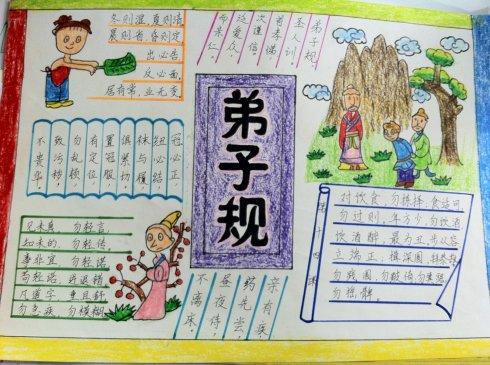 冬则温,夏则凊
晨则省,昏则定
出必告
反必面
居有常,业无变
弟子规,
圣人训,
首孝悌,
次谨信,
泛爱众,
而亲仁,
冠必正,
纽必结
袜与履
俱紧切,
置冠服,
有定位,
勿乱顿,
致污秽,
不贵华,
弟子规
见未真,勿轻言,
知未的,勿轻传,
事非宜,勿轻诺
苟轻诺,进退错
凡道字,重且舒
勿急疾,勿模糊
亲有疾,
药先尝,
昼夜侍,
不离床。
对饮食,勿拣择,食适可
勿过则,年方少,勿饮酒
饮酒醉,最为丑,步从容
立端正,揖深圆,拜恭敬
勿践阈,勿跛倚,勿箕踞
勿摇髀。